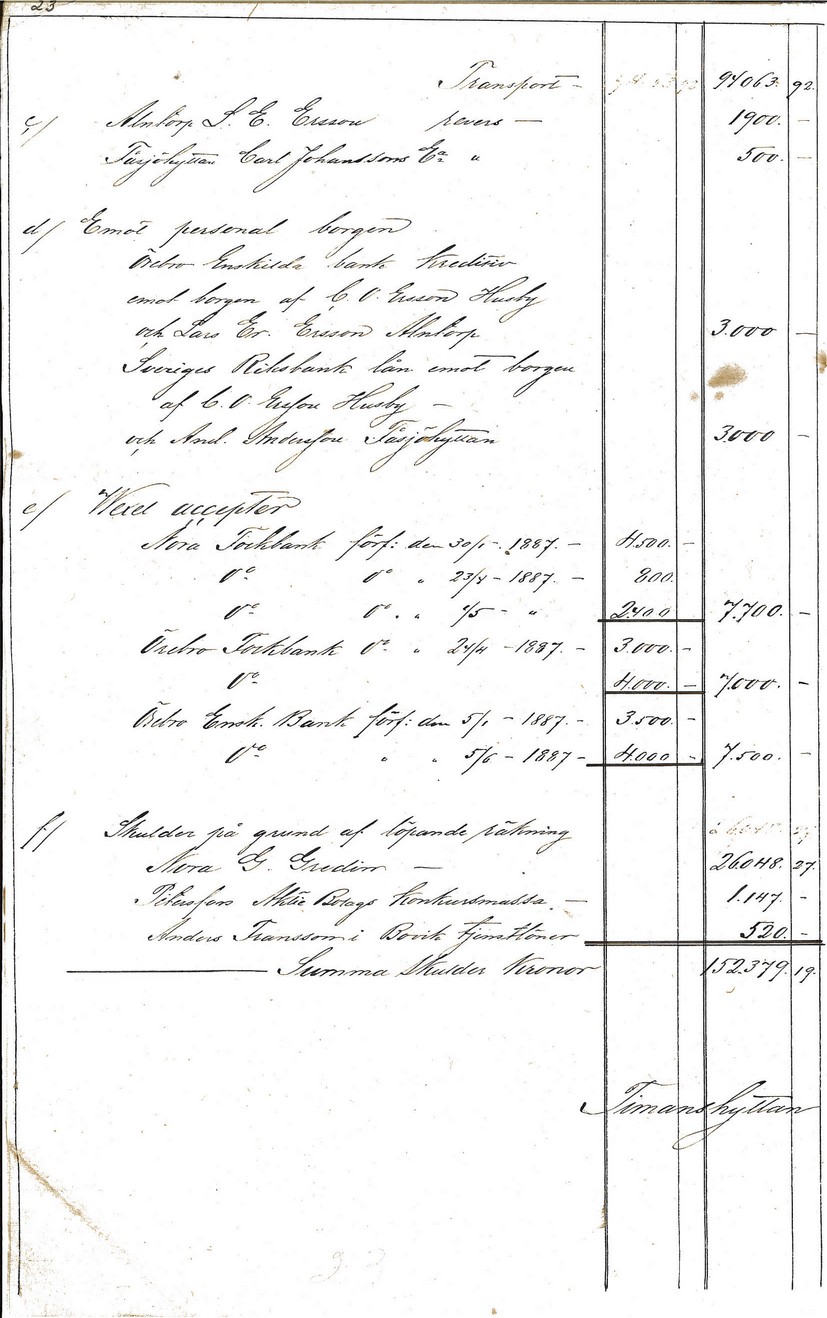 23
Transport – 94063. 92.
c/ Alntorp L. E. Ersson revers – 1900. –
Fåsjöhyttan Carl Johanssons Ea " 500. –
d/ Emot personal borgen
Örebro Enskilda bank Kreditiv
emot borgen af C. O. Ersson Husby
och Lars Er. Ersson Alntorp 3.000 –
Sveriges Riksbank lån emot borgen
af C. O. Ersson Husby –
och And. Andersson Fåsjöhyttan 3000 –
e/ Wexel accepter
Nora Tockbank förf: den 30/1 – 1887. – 4500. –
do do " 23/4 – 1887. – 800.
do do . " 1/5 – " 2400 7.700. –
Örebro Tockbank do " 24/4 – 1887. – 3.000. –
do 4.000. – 7.000. –
Örebro Ensk. Bank förf: den 5/1 – 1887. – 3.500. –
do " " 5/6 – 1887 – 4.000 – 7.500. –
f/ Skulder på grund af löpande räkning
Nora G. Gredin – 26048. 27.
Pétersfors Aktie Bolags Konkursmassa. – 1.147. –
Anders Fransson i Bovik tjenstlöner 520. –
Summa Skulder Kronor 152.379. 19.
Timanshyttan